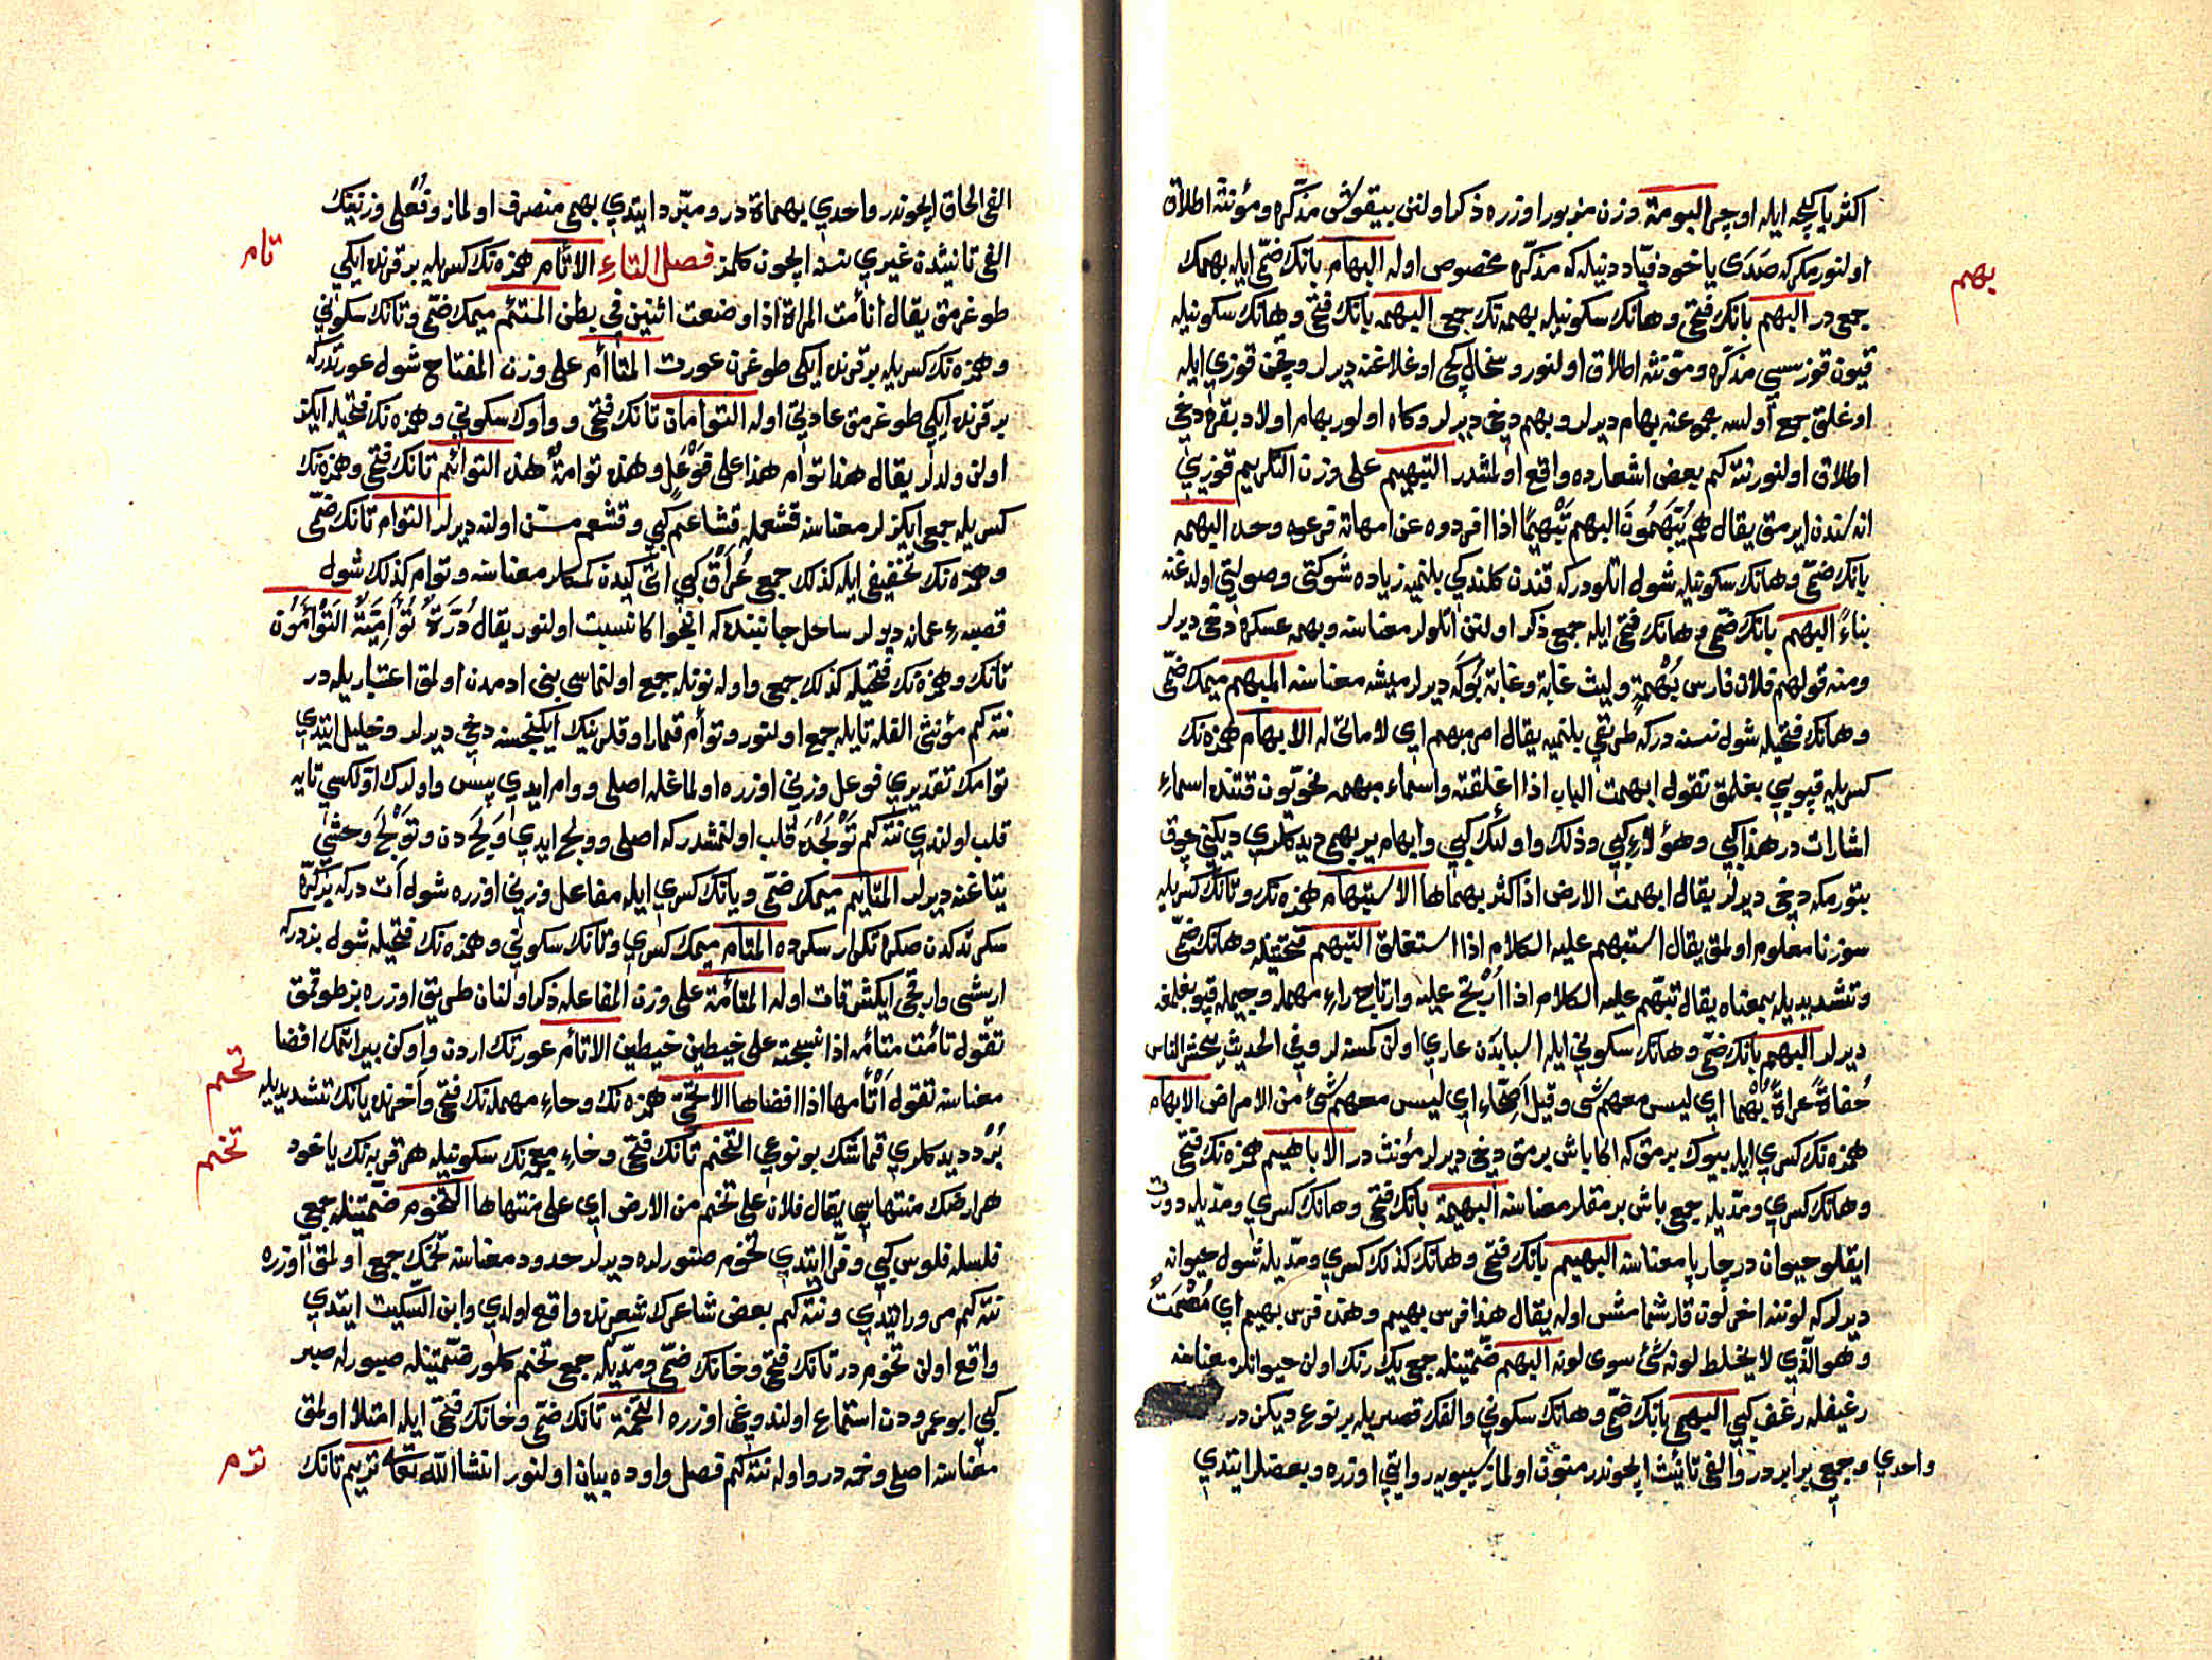 اكثريا كيجه ايله اوچر البومة وزن مزبور اوزره ذكر اولنن بيقوش مذكره ومؤنثه اطلاق
اولنور مكر كه صدى ياخود فياد دنيله كه مذكره مخصوص اوله البهام بانك ضمى ايله بهمك
جمعى در البهم بانك فتحى وهانك سكونيله بهمه نك جمعى البهمه بانك فتحى وهانك سكونيله
قيون قوزسى مذكره ومؤنثه اطلاق اولنور وسخال كجى اوغلاغنه ديرلر وقچن قوزى ايله
اوغلق جمع اولسه مجموعنه بهام ديرلر وبهم دخى ديرلر وكاه اولور بهام اولاد بقره دخى
اطلاق اولنور نته كم بعض اشعارده واقع اولمشدر التبهيم على وزن التكريم قوزيى
اناسندن ايرمق يقال هم يبهمون البهم تبهيما اذا افردوه عن امهاته فرعوه وحده البهمه
بانك ضمى وهانك سكونيله شول اتلودركه قندن كلدكى بلنميه زياده شوكتى وصولتى اولدغنه
بناء البهم بانك ضمى وهانك فتحى ايله جمع ذكر اولنن اتلولر معناسنه وبهمه عسكره دخى ديرلر
ومنه قولهم فلان فارس بهمة وليث غابة وغابه بوكه ديرلر ميشه معناسنه المبهم ميمك ضمى
وهانك فتحيله شول نسنه دركه طريقى بلنميه يقال امر مبهم اى لا مأتى له الابهام همزه نك
كسريله قپويى بغلمق تقول ابهمت الباب اذا اغلقته واسماء مبهمه نحويون قتنده اسماء
اشارات در هذا كبى وهؤلاء كبى وذلك واولئك كبى وابهام ير بهمى ديدكلرى ديكنى چوق
بتورمكه دخى ديرلر يقال ابهمت الارض اذا كثر بهماها الاستبهام همزه نك وتانك كسريله
سوز نامعلوم اولمق يقال استبهم عليه الكلام اذا استغلق التبهم فتحتينله وهانك ضمى
وتشديديله بمعناه يقال تبهم عليه الكلام اذا ارتج عليه وارتاج راء مهمله وجيمله قپو بغلمغه
ديرلر البهم بانك ضمى وهانك سكونى ايله اسبابدن عارى اولن كمسنه لر وفى الحديث يحشر الناس
حفاة عراة بهما اى ليس معهم شى وقيل اصحاء اى ليس معهم شئ من الامراض الابهام
همزه نك كسرى ايله بيوك برمق كه اكا باش برمق دخى ديرلر مؤنث در الاباهيم همزه نك فتحى
وهانك كسرى ومديله جمع باش برمقلر معناسنه البهيمة بانك فتحى وهانك كسرى ومديله دورت
ايقلو حيوان در چارپا معناسنه البهيم بانك فتحى وهانك كذلك كسرى ومديله شول حيوانه
ديرلركه لوننه اخر لون قارشمامش اوله يقال هذا فرس بهيم وهذه فرس بهيم اى مصمت
وهو الذى لا يخلط لونه شئ سوى لونه البهم ضمتينله جمع يك رنك اولن حيوانلر معناسنه
رغيفله رغف كبى البهمى بانك ضمى وهانك سكونى والفك قصريله بر نوع ديكن در
واحدى وجمعى برابر در والفى تأنيث ايچوندر منون اولماز سيبويه روايتى اوزره وبعضلر ايتدى
بهم
الفى الحاق ايچوندر واحدى بهماة در ومبرد ايتدى بهمى منصرف اولماز وفعلى وزنينك
الفى تأنيثدن غيرى نسنه ايچون كلمز فصل التاء الاتآم همزه نك كسريله بر قرنده ايكى
طوغرمق يقال اتأمت المراة اذا وضعت اثنين فى بطن المتئم ميمك ضمى وتانك سكونى
وهمزه نك كسريله بر قرنده ايكى طوغرن عورت المتاأم على وزن المفتاح شول عورتدركه
بر قرنده ايكى طوغرمق عادتى اوله التوأمان تانك فتحى وواوك سكونى وهمزه نك فتحيله ايكيز
اولن ولدلر يقال هذا توأم هذا على فوعل وهذه توأمة هذه التوائم تانك فتحى وهمزه نك
كسريله جمع ايكزلر معناسنه قشعمله قشاعم كبى وقشعم مسن اولنه ديرلر التوام تانك ضمى
وهمزه نك تخفيفى ايله كذلك جمع عراق كبى اتى كيدن كمكلر معناسنه وتوام كذلك شول
قصبه عمانه ديرلر ساحل جانبنده كه انجوا كا نسبت اولنور يقال درة توأمية التوأمون
تانك وهمزه نك فتحيله كذلك جمع واوله نونله جمع اولنماسى بنى ادمدن اولمق اعتباريله در
نته كم مؤنثى الفله تايله جمع اولنور وتوأم قمار اوقلرينك ايكنجسنه دخى ديرلر وخليل ايتدى
توأمك تقديرى فوعل وزنى اوزره اولمغله اصلى ووأم ايدى پس واولرك اولكسى تايه
قلب اولندى نته كم تولجده قلب اولنمشدركه اصلى وولج ايدى ولج دن وتولج وحشى
يتاغنه ديرلر المتايم ميمك ضمى ويانك كسرى ايله مفاعل وزنى اوزره شول ات دركه بر كره
سكرتدكدن صكره تكرار سكرده المتأم ميمك كسرى وتانك سكونى وهمزه نك فتحيله شول بزدركه
ارشى وارغجى ايكشر قات اوله المتأئمة على وزن المفاعله ذكر اولنان طريق اوزره بز طوقمق
تقول تائمت متائمه اذا نسجته على خيطين خيطين الاتآم عورتك اردن واوكن بير ايتمك افضا
معناسنه تقول اتأمها اذا افضاها الاتحمى همزه نك وحاء مهمله نك فتحى واخرنده يانك تشديديله
برد ديدكلرى قماشك بر نوعى التخم تانك فتحى وخاء معجمه نك سكونيله هر قريه نك ياخود
هر ارضك منتهاسى يقال فلان على تخم من الارض اى على منتهاها التخوم ضمتينله جمعى
فلسله فلوس كبى وفرا ايتدى تخوم صنورلره ديرلر حدود معناسنه تخمك جمعى اولمق اوزره
نته كم مرور ايتدى ونته كم بعض شاعرك شعرنده واقع اولدى وابن السكيت ايتدى
واقع اولن تخوم در تانك فتحى وخانك ضمى ومديله جمعى تخم كلور ضمتينله صبورله صبر
كبى ابو عمرودن استماع اولندوغى اوزره التخمة تانك ضمى وخانك فتحى ايله امتلا اولمق
معناسنه اصلى وخمه در واوله نته كم فصل واوده بيان اولنور انشا الله تعالى تزيم تانك
تام
تحم
تخم